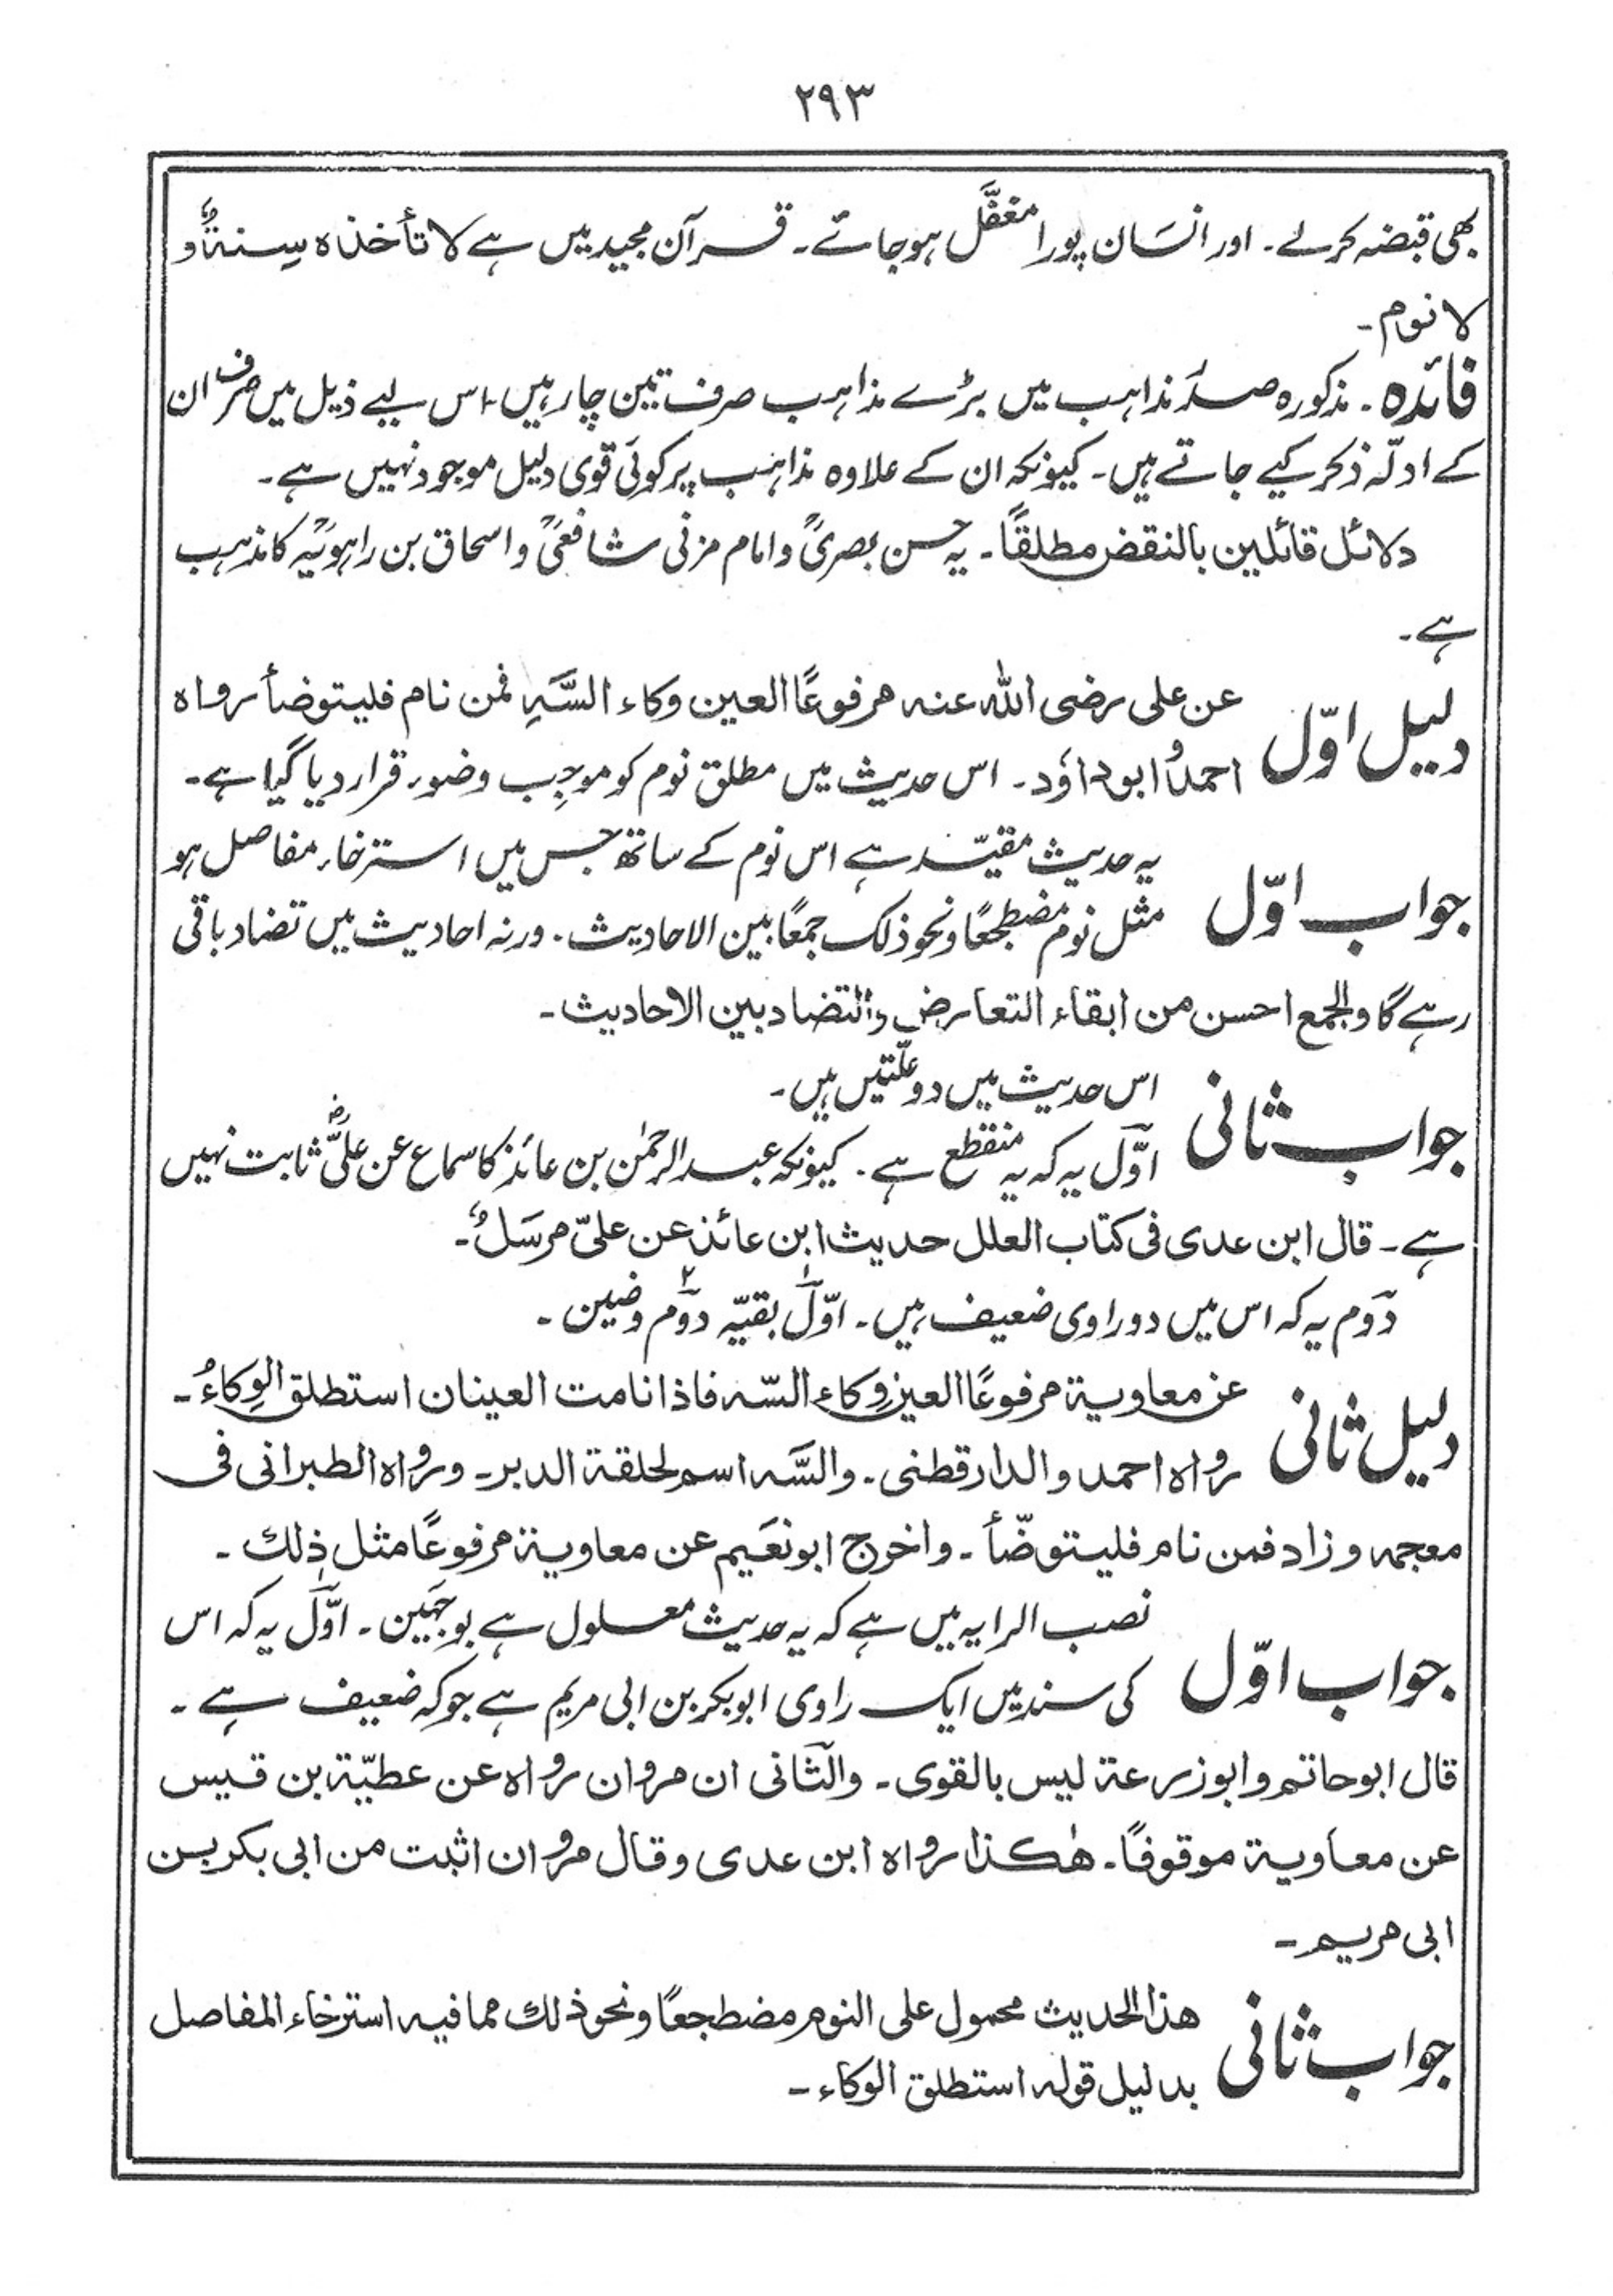 ۲۹۳
بھی قبضہ کرلے۔ اور انسان پورا مغفَّل ہوجائے۔ قرآن مجید میں ہے لا تأخذہ سِنۃٌ و
لا نوم۔
فائدہ۔ مذکورہ صدر مذاہب میں بڑے مذاہب صرف تین چار ہیں، اس لیے ذیل میں صرف ان
کے ادلّہ ذکر کیے جاتے ہیں۔ کیونکہ ان کے علاوہ مذاہب پر کوئی قوی دلیل موجود نہیں ہے۔
دلائل قائلین بالنقض مطلقًا۔ یہ حسن بصریؒ و امام مزنی شافعیؒ و اسحاق بن راہویہؒ کا مذہب
ہے۔
دلیل اوّل عن علی رضی اللہ عنہ مرفوعًا العین وکاء السَّہِ فمن نام فلیتوضأ رواہ
احمدُ و ابوداؤد۔ اس حدیث میں مطلق نوم کو موجِب وضوء قرار دیا گیا ہے۔
جواب اوّل یہ حدیث مقیّد ہے اس نوم کے ساتھ جس میں استرخاء مفاصل ہو
مثل نوم مضطجعًا ونحو ذلک جمعًا بین الاحادیث۔ ورنہ احادیث میں تضاد باقی
رہے گا والجمع احسن من ابقاء التعارض والتضاد بین الاحادیث۔
جواب ثانی اس حدیث میں دو علّتیں ہیں۔
اوّل یہ کہ یہ منقطع ہے۔ کیونکہ عبدالرحمٰن بن عائذ کا سماع عن علیؓ ثابت نہیں
ہے۔ قال ابن عدی فی کتاب العلل حدیث ابن عائذ عن علیّ مرسَلٌ۔
دوم یہ کہ اس میں دو راوی ضعیف ہیں۔ اوّل ۱ بقیّہ دوم ۲ وضین۔
دلیل ثانی عن معاویۃ مرفوعًا العین وِکاء السّہ فاذا نامت العینان استطلق الوِکاءُ۔
رواہ احمد والدارقطنی۔ والسَّہ اسم لحلقۃ الدبر۔ ورواہ الطبرانی فی
معجمہ وزاد فمن نام فلیتوضّأ۔ واخرج ابونعَیم عن معاویۃ مرفوعًا مثل ذلك۔
جواب اوّل نصب الرایہ میں ہے کہ یہ حدیث معلول ہے بوجہَین۔ اوّل یہ کہ اس
کی سند میں ایک راوی ابوبکر بن ابی مریم ہے جو کہ ضعیف ہے۔
قال ابوحاتم وابوزرعۃ لیس بالقوی۔ والثانی ان مروان رواہ عن عطیّۃ بن قیس
عن معاویۃ موقوفًا۔ ھٰکذا رواہ ابن عدی وقال مروان اثبت من ابی بکر بن
ابی مریم۔
جواب ثانی ھذا الحدیث محمول علی النوم مضطجعًا ونحو ذلك مما فیہ استرخاء المفاصل
بدلیل قولہ استطلق الوکاء۔